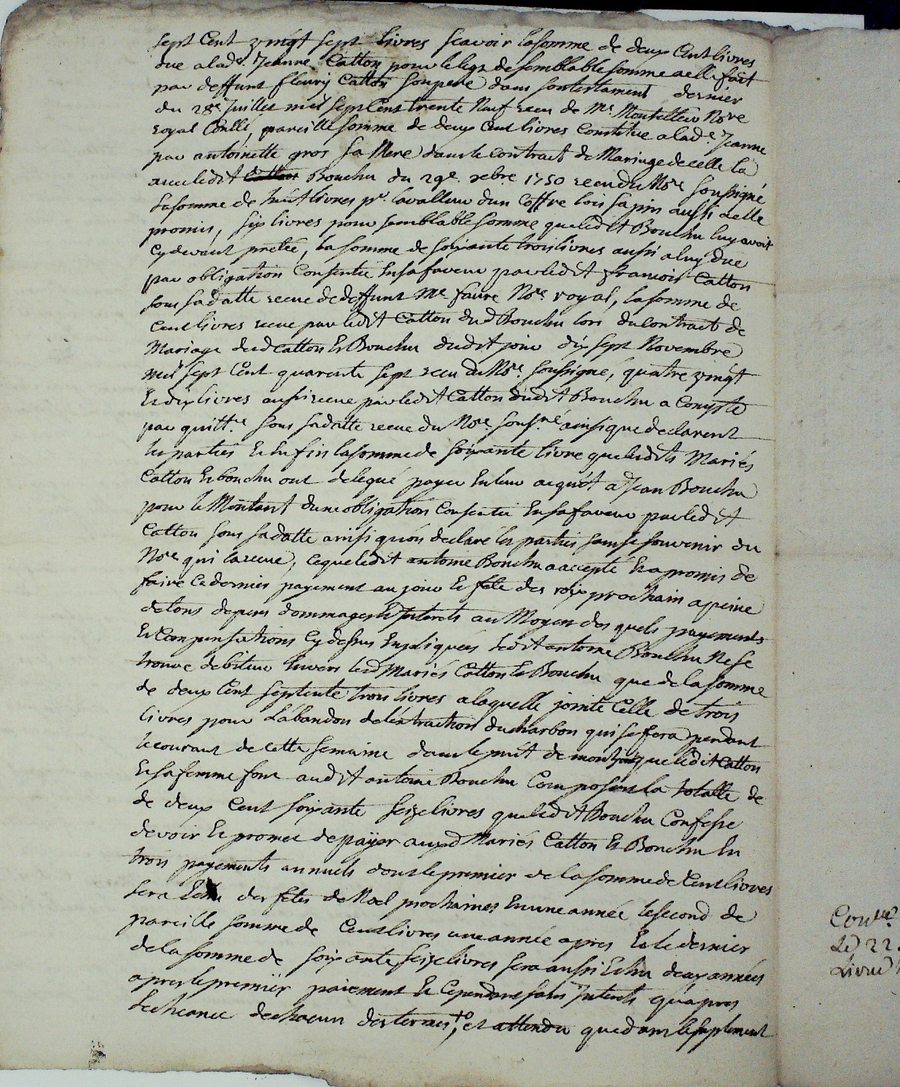 sept Cent vingt sept livres scavoir la somme de deux Cent livres
due a lad.e Jeanne Catton pour le legs de semblable somme a elle fait
par deffunt fleury Catton son pere dans son testament dernier
du 28e Juillet mil sept Cent trente Neuf receu de Me. Montellier Nore
royal pareille somme de deux Cent livres Constituée a lad.e Jeanne
par antoinette gros sa Mere dans le Contract de Mariage de celle la
avec ledit Bouchu du 29e. xbre 1750 receu du Nore soussigné
la somme de huit livres pr. la valleur d'un Coffre bois sapin aussi a elle
promis, six livres pour semblable somme que ledit Bouchu luy avoit
Cy devant pretée, la somme de soixante trois livres aussi a luy due
par obligation Consentie En sa faveur par ledit francois Catton
sous sa datte receue de deffunt Me. faure Nore. royal, la somme de
Cent livres receue par ledit Catton dud Bouchu lors du Contract de
Mariage desd Catton Et Bouchu dudit jour dix sept Novembre
mil sept Cent quarente sept receu du Nore soussigné, quatre vingt
Et dix livres aussi receue par ledit Catton dudit Bouchu a Compte
par quitte. sous sa datte receue du Nore sousné ainsi que declarent
les parties Et En fin la somme de soixante livre que lesdits Mariés
Catton Et bouchu ont delegué payer En leur acquit a Jean Bouchu
pour le Montant d'une obligation Consentie En sa faveur par ledit
Catton sous sa datte ainsi qu'on declaré les parties sans se souvenir du
Nore qui l'a receue, ce que ledit antoine Bouchu a accepté Et a promis de
faire Ce dernier payement au jour Et fete des roys prochain a peine
de tous depens dommages Et Interets au Moyen des quels payements
Et Compensations Cy dessus Expliquées ledit antoine Bouchu Ne se
trouve debiteur Envers lesd Mariés Catton Et Bouchu que de la somme
de deux Cent septente trois livres a laquelle jointe Celle de trois
livres pour l'abandon de l'extraction du charbon qui se fera pendant
le courant de cette semaine dans le puit de que ledit Catton
Et sa femme font audit antoine Bouchu Composent la totalle de
de deux Cent soixante seize livres que ledit Bouchu Confesse
devoir Et promet de payer auxd Mariés Catton Et Bouchu En
trois payements annuels dont le premier de la somme de Cent livres
sera des fetes de Noel prochaines En une année le second de
pareille somme de Cent livres une année apres Et le dernier
de la somme de soixante seize livres sera aussi Echu deux années
apres le premier paiement Et Cependant sans Interets qu'apres
l'echeance de chacun des termes, et attendu que dans le suplement
Con
Led 22.